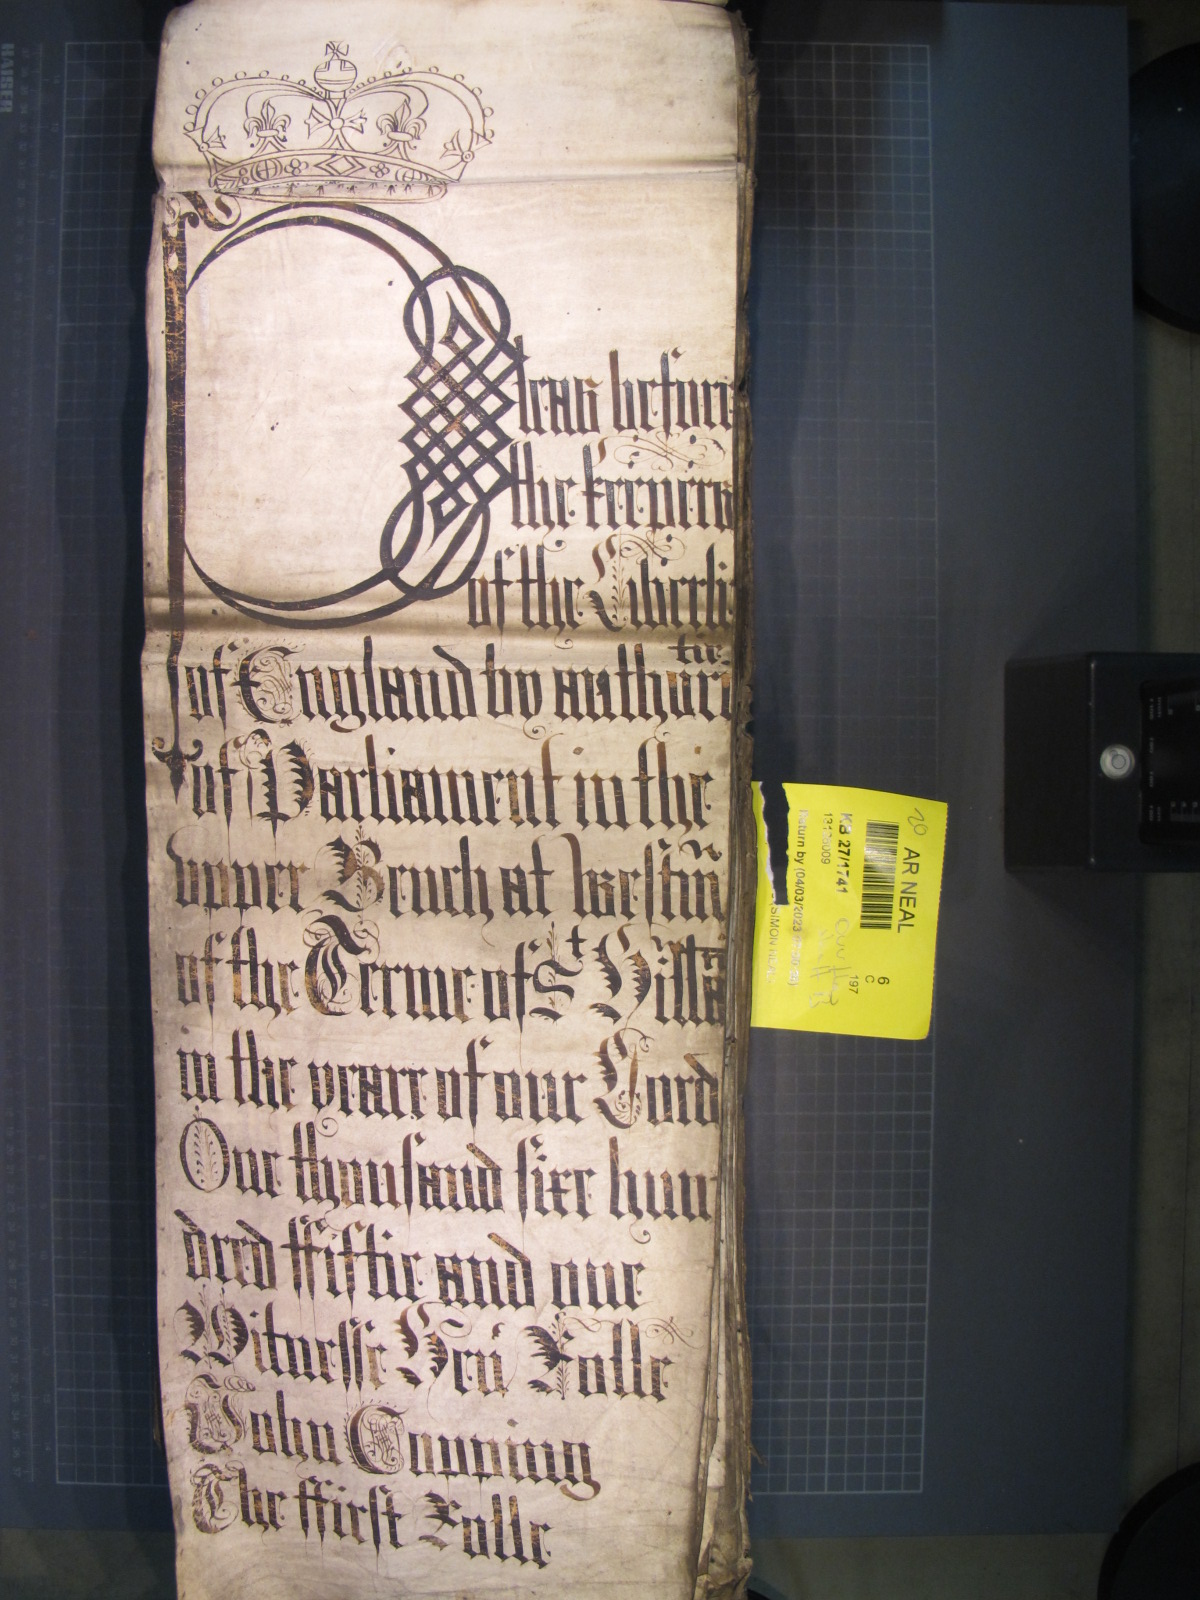 Pleas before
the keepers
of the Liberti
of England by authori
tie
of Parliament in the
upper Bench at Westm
of the Terme of St Hilla
in the yeare of our Lord
One thousand sixe hun
dred ffiftie and one
Witnesse Hen Rolle
John Copping
The ffirst Rolle
20
AR NEAL
KB 27/1741
13139009
6
C
197
Return by (04/03/2023
SIMON NEAL